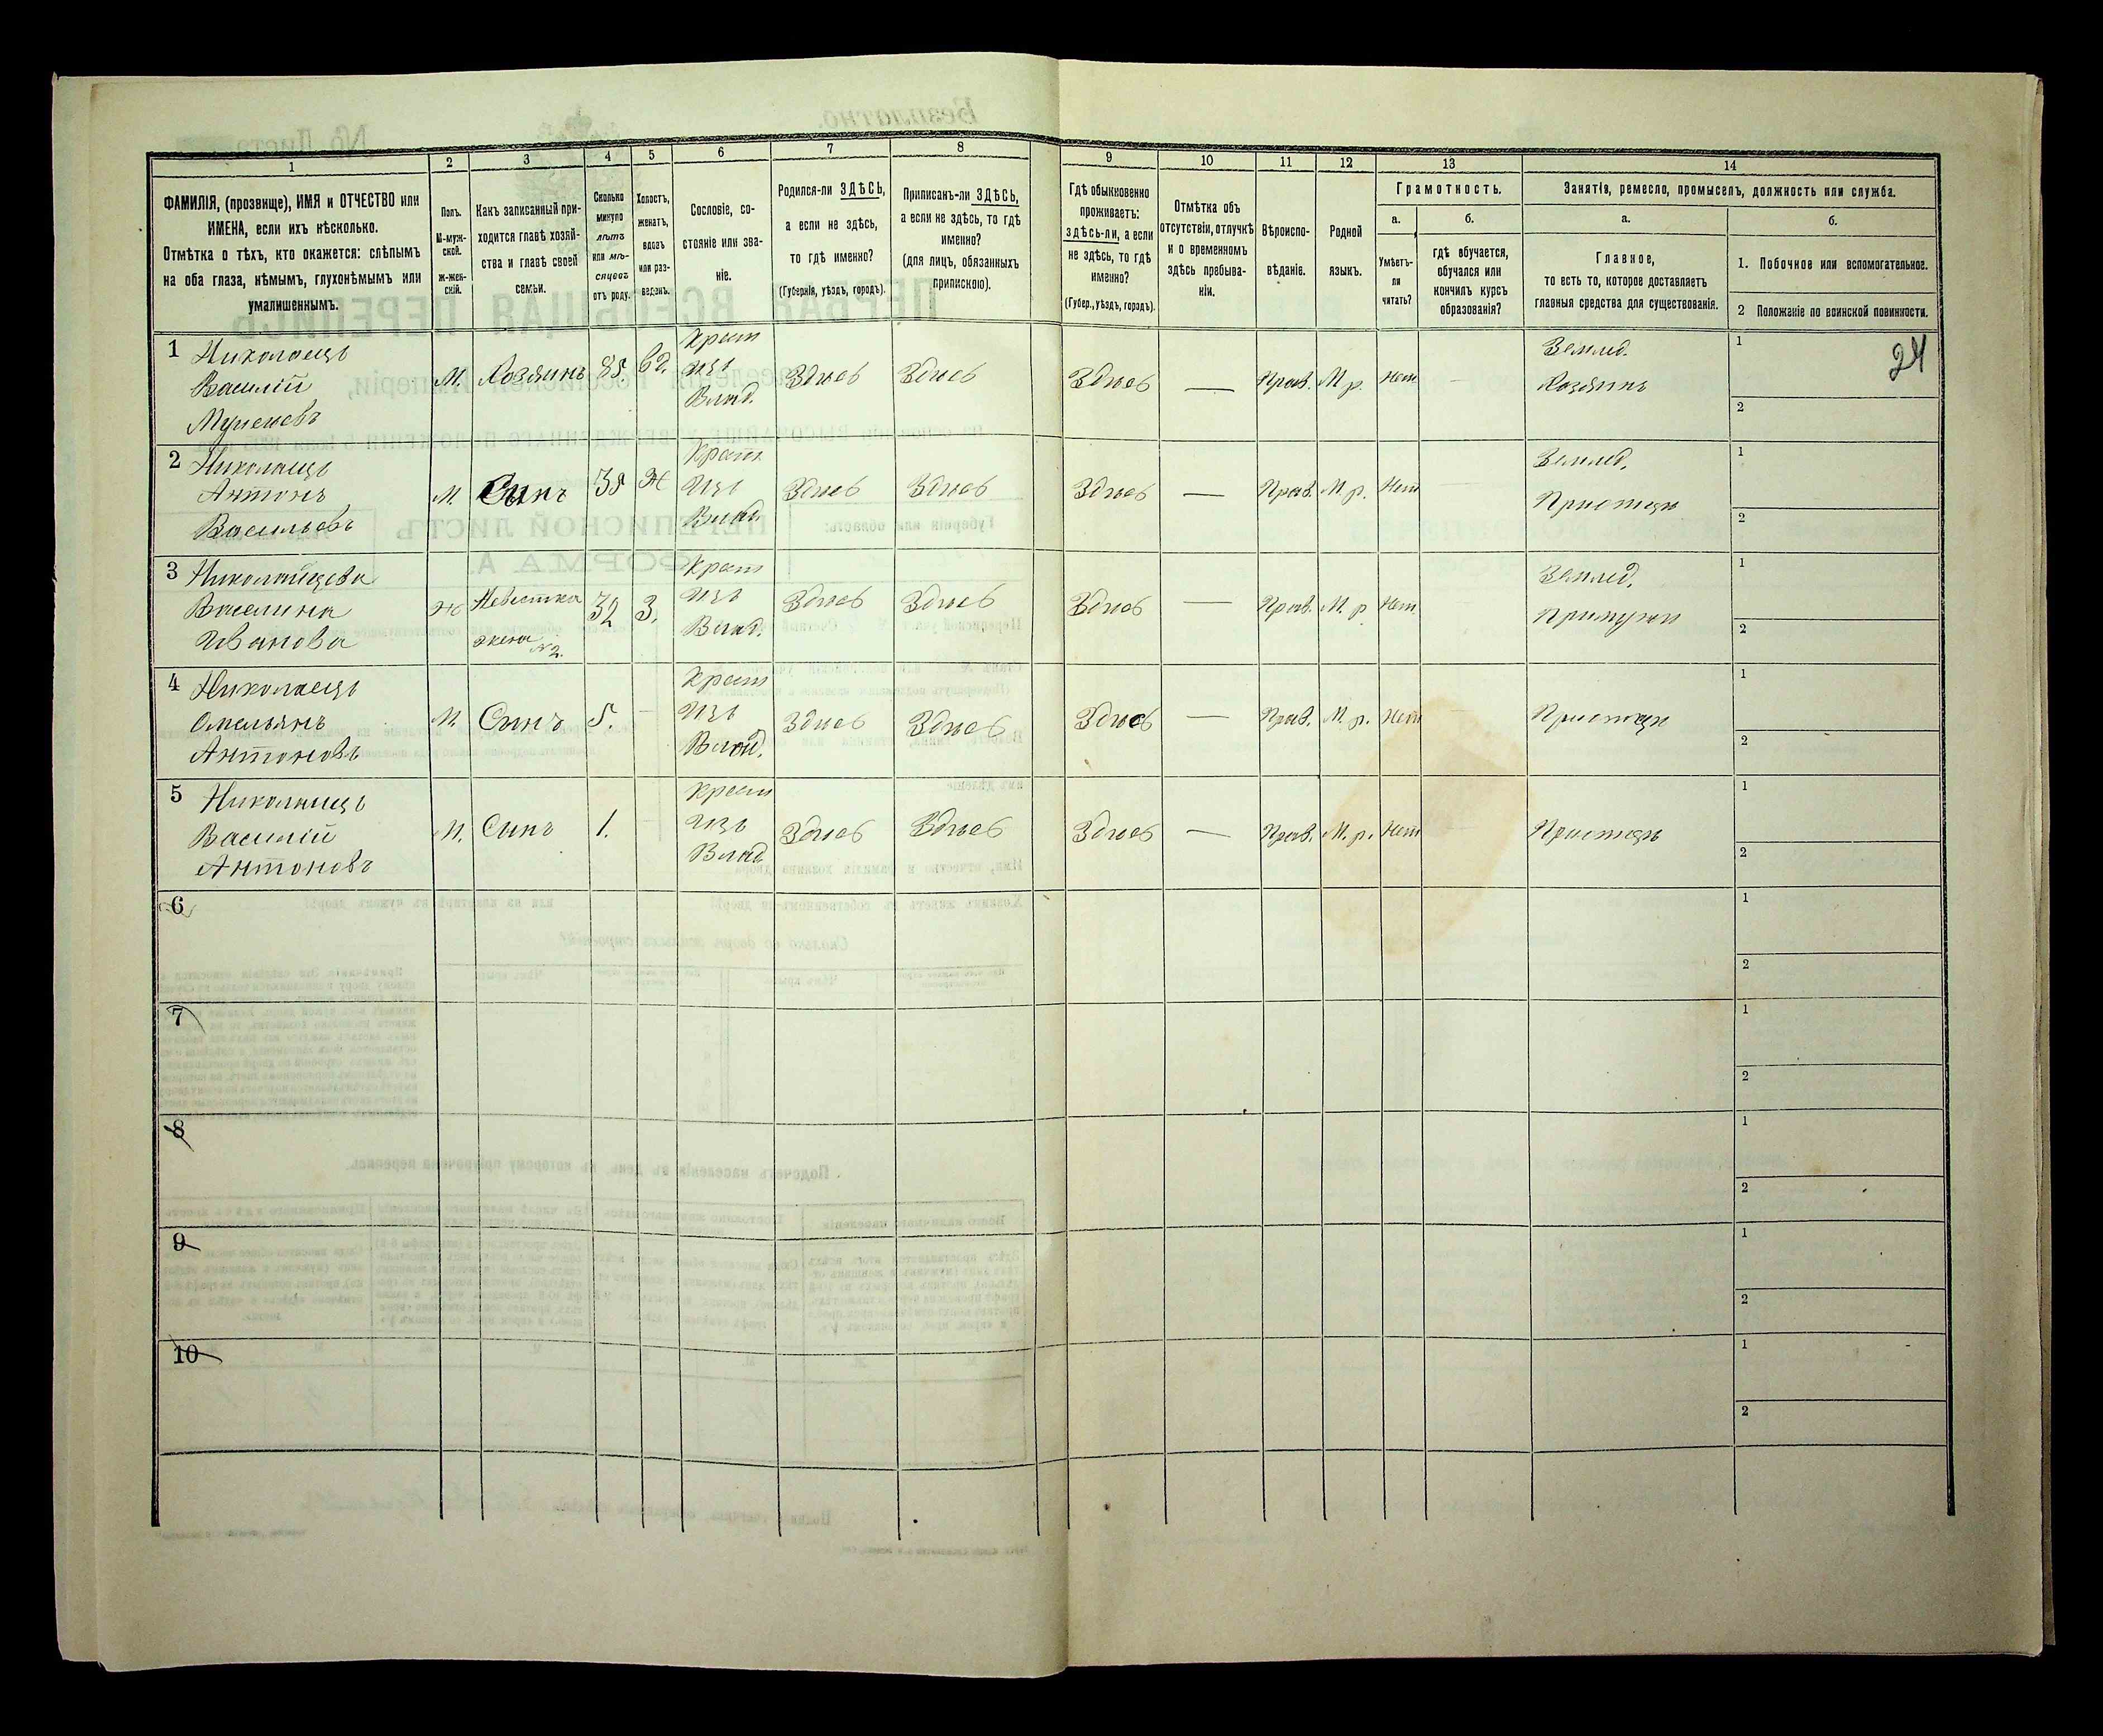 1 2 3 4 5 6 7 8 9 10 11 12 13 14
ФАМИЛІЯ, (прозвище), ИМЯ и ОТЧЕСТВО или
ИМЕНА, если ихъ нѣсколько.
Отмѣтка о тѣхъ, кто окажется: слѣпымъ
на оба глаза, нѣмымъ, глухонѣмымъ или
умалишеннымъ.
Полъ.
М-муж-
ской.
ж-жен-
скій.
Какъ записанный при-
ходится главѣ хозяй-
ства и главѣ своей
семьи.
Сколько
минуло
лѣтъ
или мѣ-
сяцевъ
отъ роду.
Холостъ,
женатъ,
вдовъ
или раз-
веденъ.
Сословіе, со-
стояніе или зва-
ніе.
Родился-ли ЗДѢСЬ,
а если не здѣсь,
то гдѣ именно?
(Губернія, уѣздъ, городъ).
Приписанъ-ли ЗДѢСЬ,
а если не здѣсь, то гдѣ
именно?
(для лицъ, обязанныхъ
припискою).
Гдѣ обыкновенно
проживаетъ:
здѣсь-ли, а если
не здѣсь, то гдѣ
именно?
(Губер., уѣздъ, городъ).
Отмѣтка объ
отсутствіи, отлучкѣ
и о временномъ
здѣсь пребыва-
ніи.
Вѣроиспо-
вѣданіе.
Родной
языкъ.
Грамотность.
а.
Умѣетъ-
ли
читать?
б.
гдѣ обучается,
обучался или
кончилъ курсъ
образованія?
Занятія, ремесло, промыселъ, должность или служба.
а.
Главное,
то есть то, которое доставляетъ
главныя средства для существованія.
б.
1. Побочное или вспомогательное.
2 Положеніе по воинской повинности.
24
1 Николаецъ
Василій
М. Хозяинъ 85. вд.
Крест
изъ
Влад.
Здѣсь Здѣсь Здѣсь — Прав. М р. Нет —
Землед.
Хозяинъ
1
2
2 Николаецъ
Антонъ
Васильевъ
М. Сынъ 38 Ж
Крест
изъ
Влад.
Здѣсь Здѣсь Здѣсь — Прав. М р. Нет —
Землед.
1
2
3 Николайцева
Василина
Иванова
Ж Невестка
жена
№ 2.
32 З.
Крест
изъ
Влад.
Здѣсь Здѣсь Здѣсь — Прав. М. р Нет
Землед.
1
2
4 Николаецъ
Омельянъ
Антоновъ
М. Сынъ 5. —
Крест
изъ
Влад.
Здѣсь Здѣсь Здѣсь — Прав. М. р. Нет
1
2
5 Николаецъ
Василій
Антоновъ
М. Сынъ 1. —
Крест
изъ
Влад
Здѣсь Здѣсь Здѣсь — Прав. М. р. Нет
1
2
6
1
2
7
1
2
8
1
2
9
1
2
10
1
2